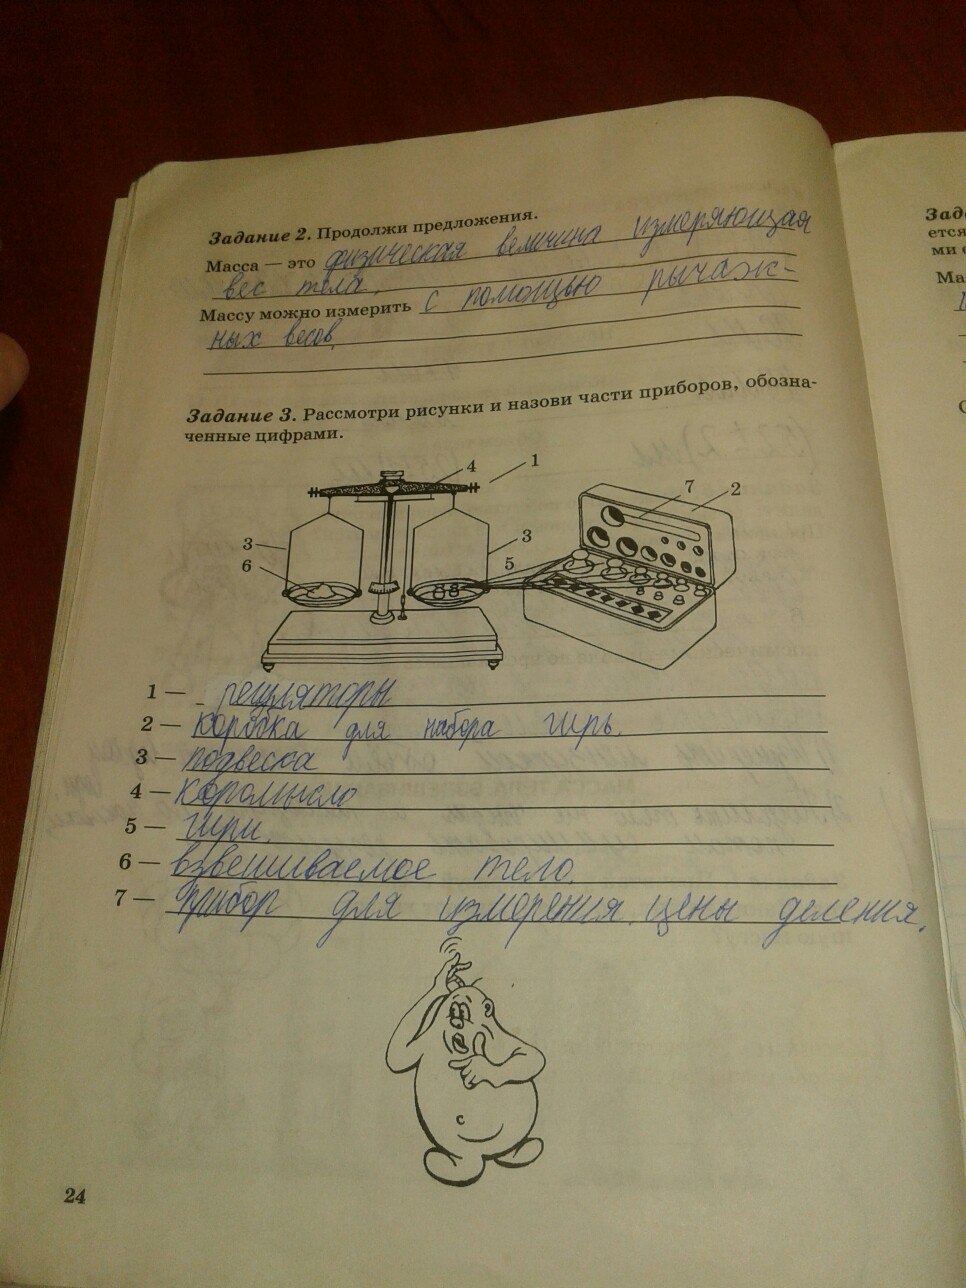 Задание 2. Продолжи предложения.
Масса — это физическая величина измеряющая
вес тела.
Массу можно измерить с помощью рычаж-
ных весов.
Задание 3. Рассмотри рисунки и назови части приборов, обозна-
ченные цифрами.
4
1
7
2
3
3
6
5
1 — регуляторы
2 — коробка для набора гирь.
3 — подвеска
4 — коромысло
5 — гири.
6 — взвешиваемое тело.
7 — прибор для измерения цены деления.
24
Зад
ется
ми е
Ма